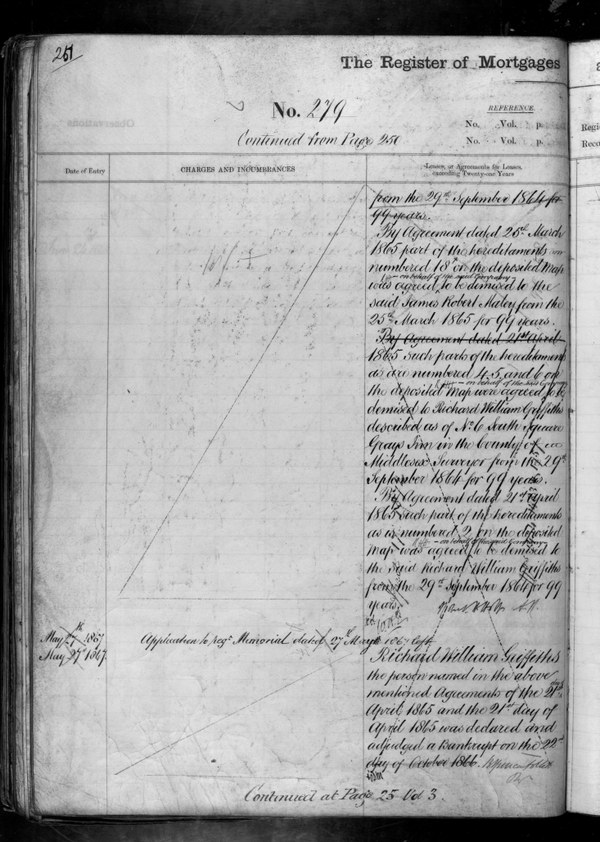 251
The Register of Mortgages
No. 279
REFERENCE.
No. Vol. p.
Continued from Page 250
No. Vol. p.
Date of Entry
CHARGES AND INCUMBRANCES
Leases, or Agreements for Leases,
exceeding Twenty-one Years
from the 29th September 1864 for
99 years.
By Agreement dated 25th March
1865 part of the hereditaments
numbered 18 on the deposited Map
on behalf of the said Company
was agreed to be demised to the
said James Robert Maley from the
25th March 1865 for 99 years.
By Agreement dated 21st April
1865 such parts of the hereditaments
as are numbered 4. 5. and 6 on
on behalf of the said Company
the deposited Map were agreed to be
demised to Richard William Griffiths
described as of No. 6 South Square
Grays Inn in the County of
Middlesex Surveyor from the 29th
September 1864 for 99 years.
By Agreement dated 21st April
1865 such part of the hereditaments
as is numbered 2 on the deposited
on behalf of the said Company
Map was agreed to be demised to
the said Richard William Griffiths
from the 29th September 1864 for 99
years.
May 27th 1867
Application to regr. Memorial dated 27th May 1867 left
May 27th 1867.
Richard William Griffiths
the person named in the above
mentioned Agreements of the 21st
April 1865 and the 21st day of
April 1865 was declared and
adjudged a Bankrupt on the 22nd
day of October 1866.
Continued at Page 25 Vol 3.